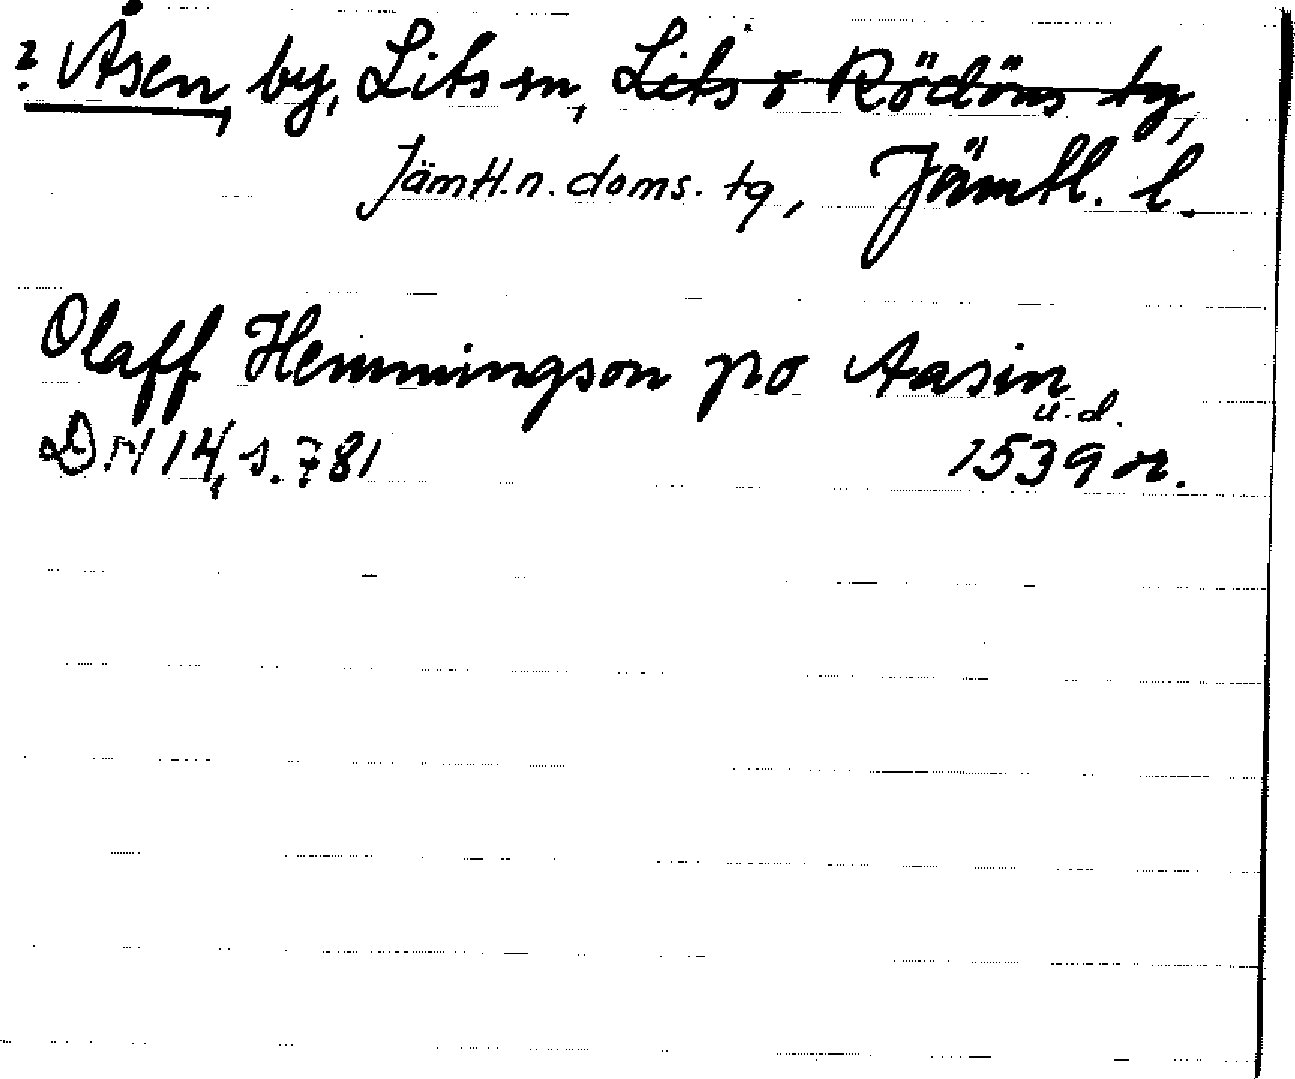 ? Åsen, by, Lits sn, Lits o Rödöns tg,
Jämtl. n. doms. tg, Jämtl. l.
Olaff Hemmingson po Aasin
u.d.
DN 14, s. 781 1539 or.